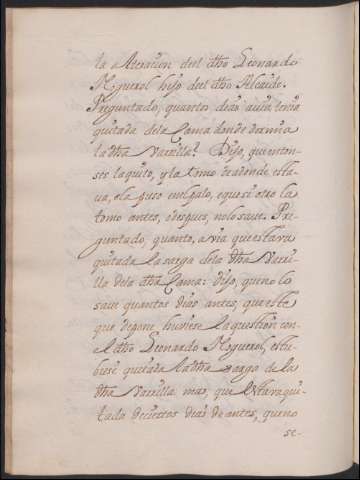 la alteracion del dho Leonardo
Miguerol hijo del dho Alcaide.
Preguntado, quantos dias avia tenia
quitada dela Cama donde dormia
la dha Varilla? Dijo, que enton-
ses la quito, y la tomo de adonde esta-
va, ola puso en el palo, e que si otro la
tomo antes, o despues, no lo save. Pre-
guntado, quanto, avia que estava
quitada la sarga dela dha Varri-
lla dela dha Cama: dijo, que no lo
save quantos dias antes, que este
que depone hubiese la question con
el dho Leonardo Miguerol, estu-
biese quitada la dha sarga de la
dha Varrilla mas, que estava qui-
tada de ciertos dias de antes, que no
se-